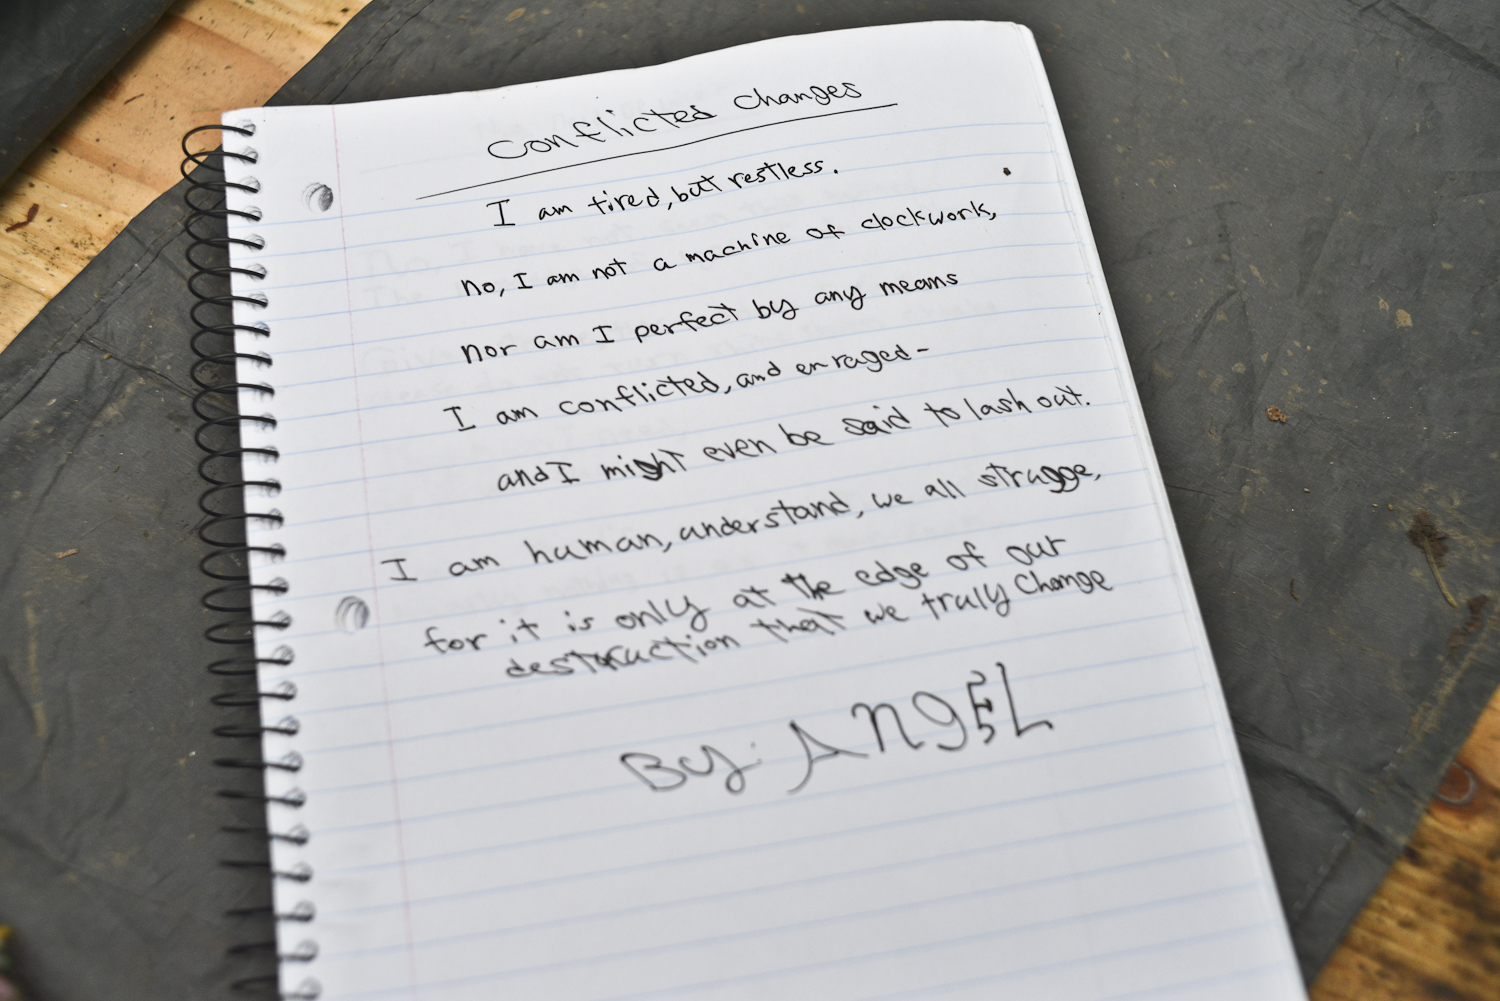 Conflicted Changes
I am tired, but restless.
No, I am not a machine of clockwork,
nor am I perfect by any means
I am conflicted, and enraged-
and I might even be said to lash out.
I am human, understand, we all strugge,
for it is only at the edge of our
destruction that we truly change
By: ANgEL